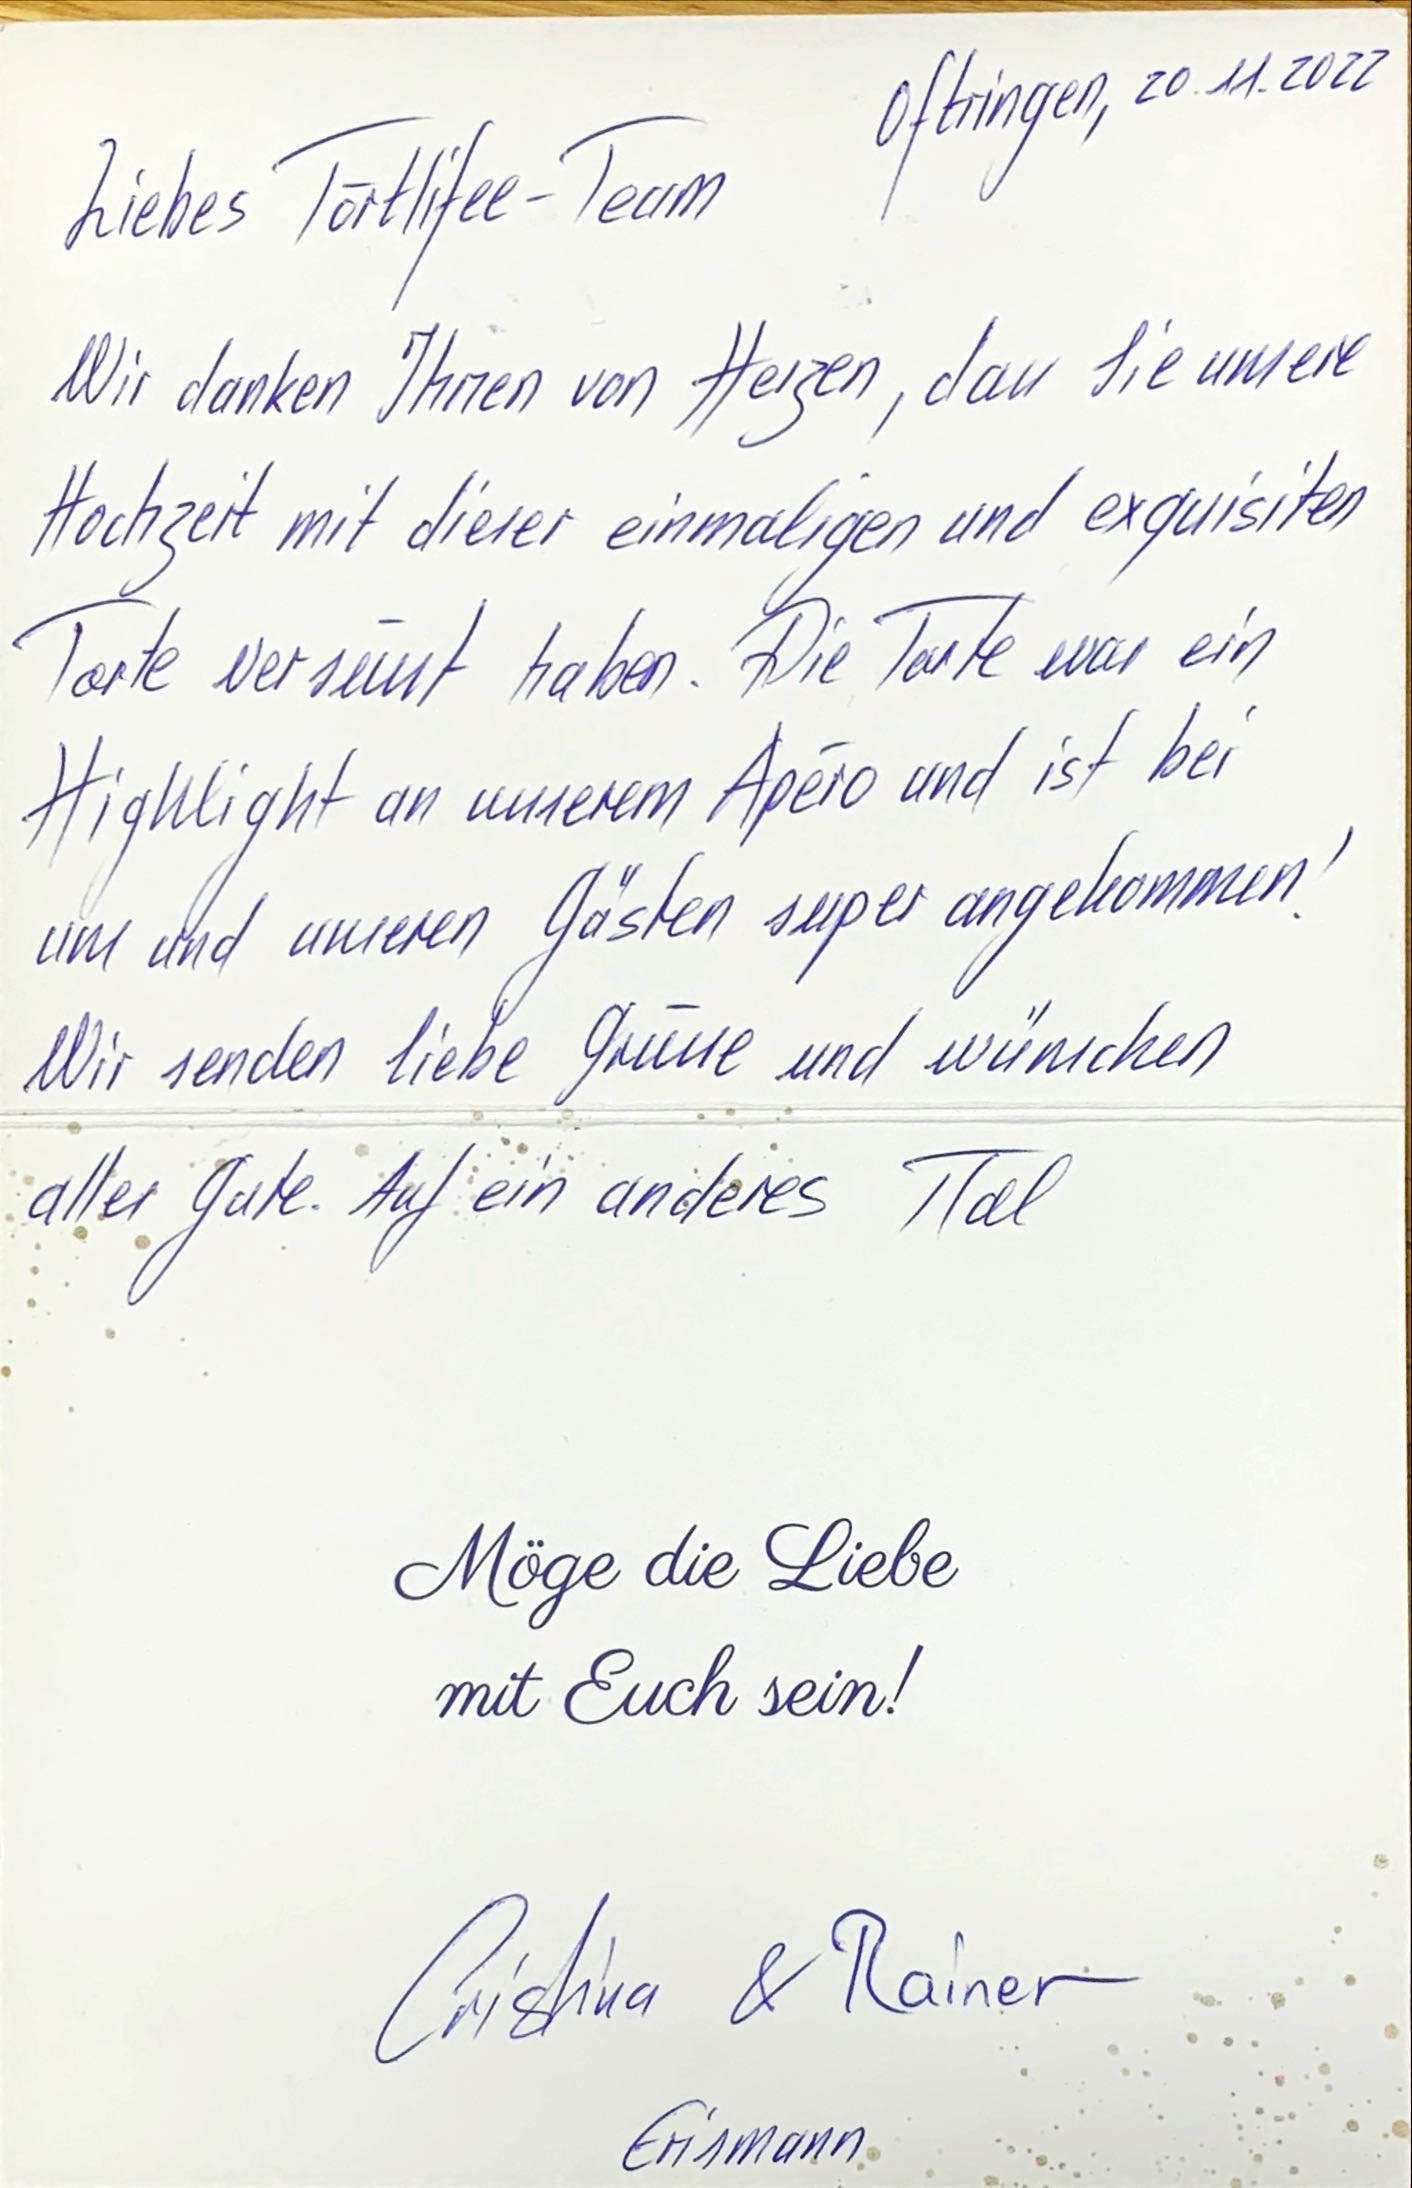 Oftringen, 20.11.2022
Liebes Törtlifee-Team
Wir danken Ihnen von Herzen, dass Sie unsere
Hochzeit mit dieser einmaligen und exquisiten
Torte versüsst haben. Die Torte war ein
Highlight an unserem Apéro und ist bei
uns und unseren Gästen super angekommen!
Wir senden liebe Grüsse und wünschen
alles Gute. Auf ein anderes Mal
Möge die Liebe
mit Euch sein!
Cristina & Rainer
Erismann